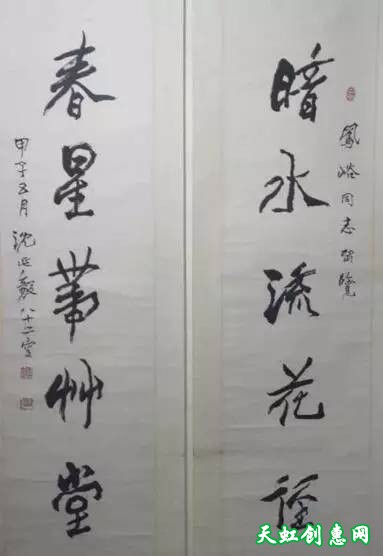 鳳峪同志留覽
暗水流花径
春星帶艸堂
甲子五月沈延毅八十二寔
天虹创意网